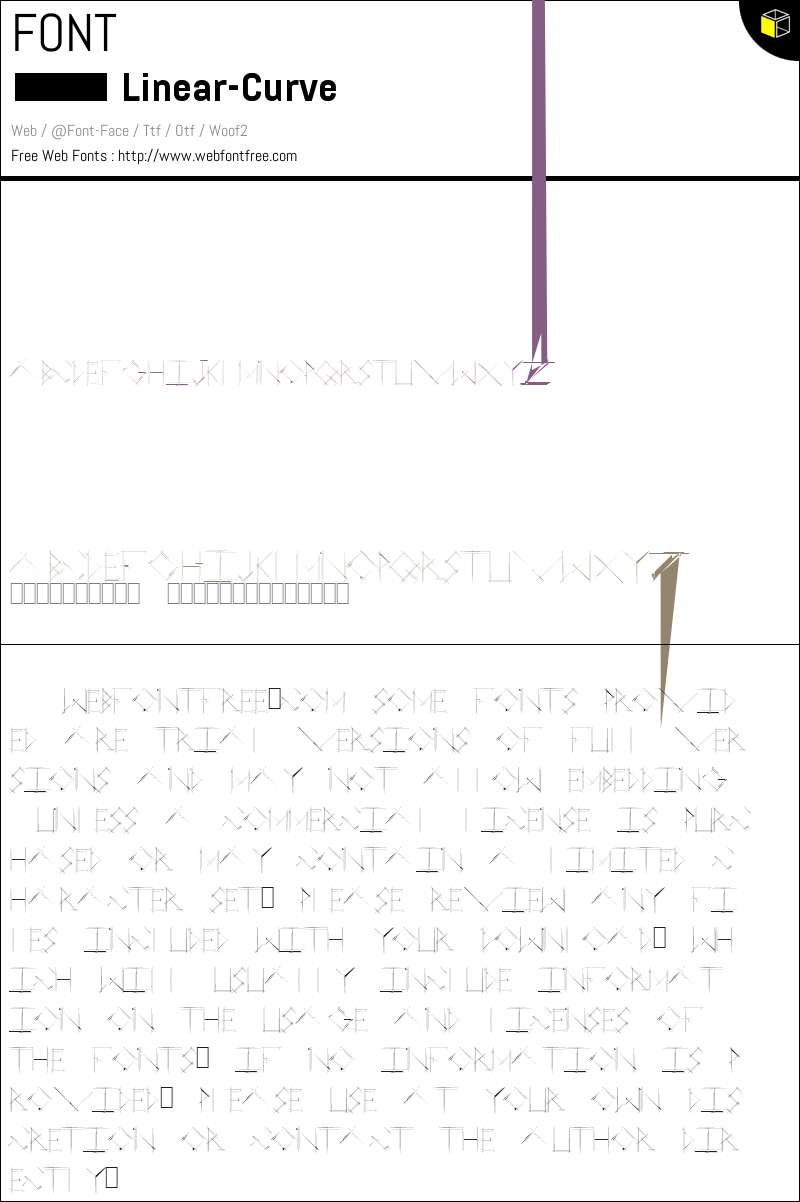 FONT
Linear-Curve
Web / @Font-Face / Ttf / Otf / Woof2
Free Web Fonts : http://www.webfontfree.com
ABCDEFGHIJKLMNOPQRSTUVWXYZ
ABCDEFGHIJKLMNOPQRSTUVWXYZ
WEBFONTFREE□COM SOME FONTS PROVID
ED ARE TRIAL VERSIONS OF FULL VER
SIONS AND MAY NOT ALLOW EMBEDDING
UNLESS A COMMERCIAL LICENSE IS PURC
HASED OR MAY CONTAIN A LIMITED C
HARACTER SET□ PLEASE REVIEW ANY FI
LES INCLUDED WITH YOUR DOWNLOAD□ WH
ICH WILL USUALLY INCLUDE INFORMAT
ION ON THE USAGE AND LICENSES OF
THE FONTS□ IF NO INFORMATION IS P
ROVIDED□ PLEASE USE AT YOUR OWN DIS
CRETION OR CONTACT THE AUTHOR DIR
ECTLY□